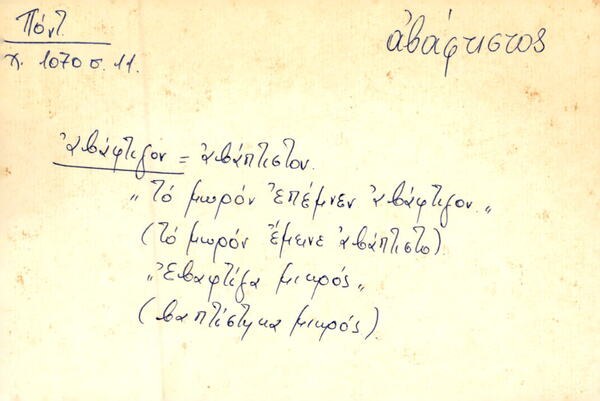 Πόντ.
χ. 1070 σ. 11.
ἀβάφτιστος
ἀβάφτιγον = ἀβάπτιστον.
„Τό μωρόν ἐπέμνεν ἀβάφτιγον.„
(τό μωρόν ἔμεινε ἀβάπτιστο).
„Ἐβαφτίγα μικρός„
(βαπτίστηκα μικρός).